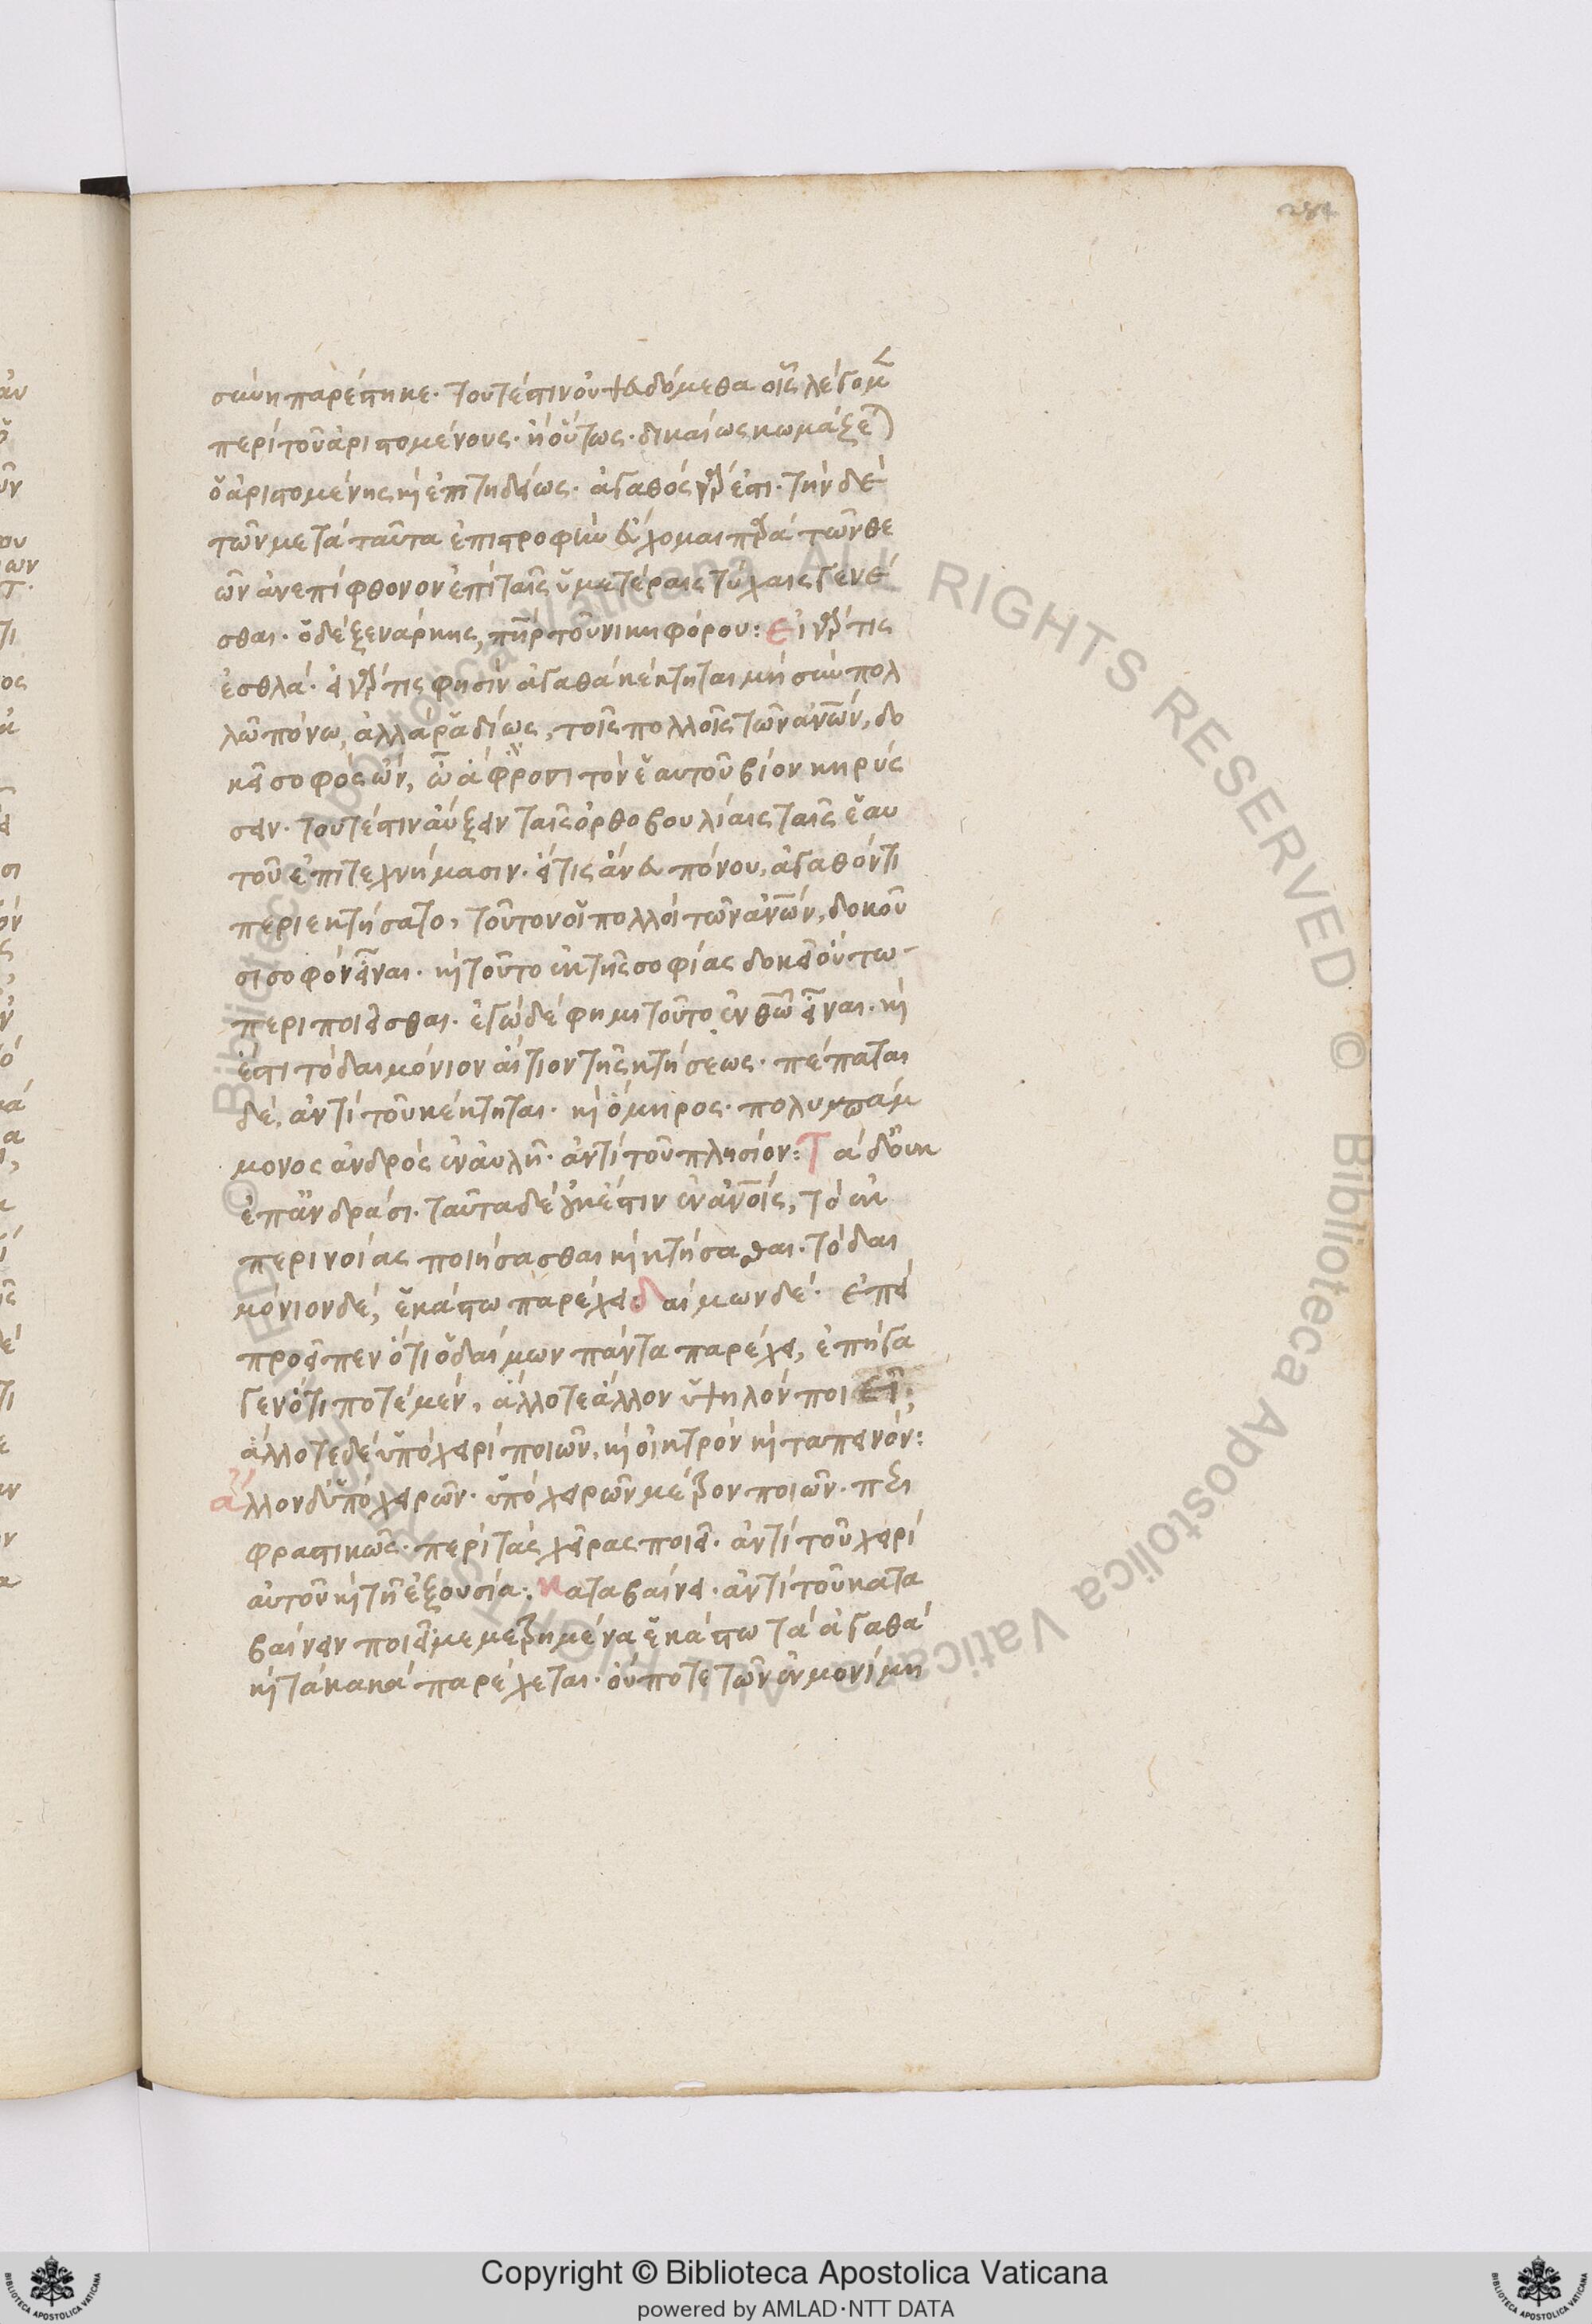 284
σύνη παρέστηκε. τουτέστιν οὐ ψευδόμεθα οἷς λέγομεν
περὶ τοῦ ἀριστομένους. ἢ οὕτως. δικαίως κωμάζεται
ὁ ἀριστομένης καὶ ἐπιτηδείως. ἀγαθὸς γάρ ἐστι. τὴν δὲ
τῶν μετὰ ταῦτα ἐπιστροφὴν εὔχομαι παρὰ τῶν θε
ῶν ἀνεπίφθονον ἐπὶ ταῖς ὑμετέραις τύχαις γενέ
σθαι. ὁ δὲ ξενάρκης, πατὴρ τοῦ νικηφόρου: εἰ γάρ τις
ἐσθλά. εἰ γάρ τις φησὶν ἀγαθὰ κέκτηται μὴ σὺν πολ
λῶ πόνω, ἀλλὰ ῥαδίως, τοῖς πολλοῖς τῶν ἀνθρώπων, δο
κεῖ σοφὸς ὢν, ἐν ἄφροσι τὸν ἑαυτοῦ βίον κηρύσ
σειν. τουτέστιν αὔξειν ταῖς ὀρθοβουλίαις ταῖς ἑαυ
τοῦ ἐπιτεχνήμασιν. εἴ τις ἄνευ πόνου, ἀγαθόν τι
περιεκτήσατο, τοῦτον οἱ πολλοὶ τῶν ἀνθρώπων, δοκοῦ
σι σοφὸν εἶναι. καὶ τοῦτο ἐκ τῆς σοφίας δοκεῖ οὕτω
περιποιεῖσθαι. ἐγὼ δέ φημι τοῦτο ἐν θεῶ εἶναι. καὶ
ἔστι τὸ δαιμόνιον αἴτιον τῆς κτήσεως. πέπαται
δὲ, ἀντὶ τοῦ κέκτηται. καὶ ὅμηρος. πολυπάμ
μονος ἀνδρὸς ἐν αὐλῆ. ἀντὶ τοῦ πλησίον: Τὰ δ' οὐκ
ἐπ' ἀνδράσι. ταῦτα δὲ οὐκ ἔστιν ἐν ἀνθρώποις, τὸ ἐκ
περινοίας ποιήσασθαι καὶ κτήσασθαι. τὸ δαι
μόνιον δὲ, ἑκάστω παρέχει: δαίμων δέ. ἐπεὶ
προεῖπεν ὅτι ὁ δαίμων πάντα παρέχει, ἐπήγα
γεν ὅτι ποτὲ μὲν, ἄλλοτε ἄλλον ὑψηλὸν ποιεῖ,
ἄλλοτε δὲ ὑπὸ χειρὶ ποιῶν, καὶ οἰκτρὸν καὶ ταπεινόν:
ἄλλον δ' ὑπὸ χειρῶν. ὑπὸ χειρῶν μέτρον ποιῶν. περι
φραστικῶς. περὶ τὰς χεῖρας ποιεῖ. ἀντὶ τοῦ χειρὶ
αὐτοῦ καὶ τῆ ἐξουσία: καταβαίνει. ἀντὶ τοῦ κατα
βαίνειν ποιεῖ. μεμετρημένα ἑκάστω τὰ ἀγαθὰ
καὶ τὰ κακὰ παρέχεται. οὔποτε τῶν ἐν μονίμη
Copyright © Biblioteca Apostolica Vaticana
powered by AMLAD·NTT DATA